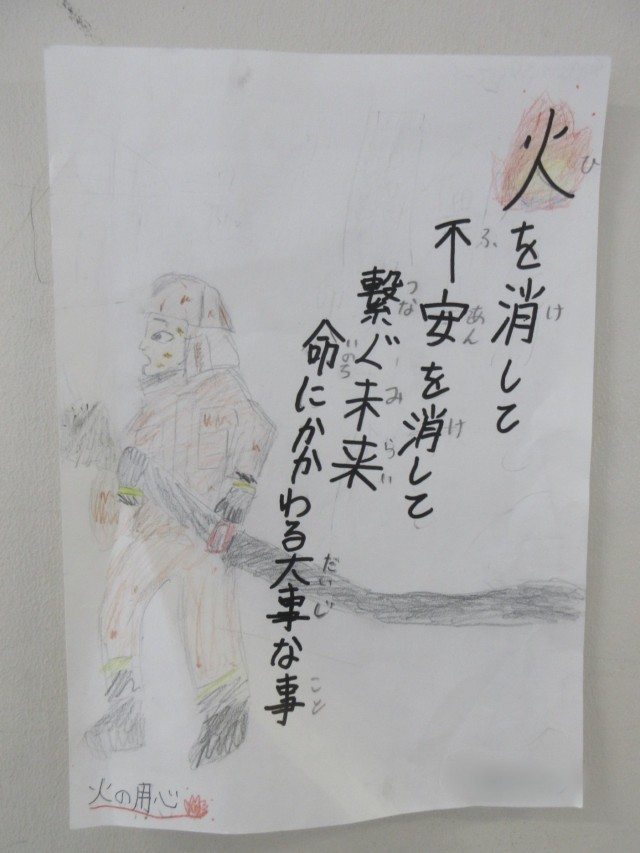 火を消して
ひ け
不安を消して
ふ あん け
繋ぐ未来
つな みらい
命にかかわる大事な事
いのち だいじ こと
火の用心